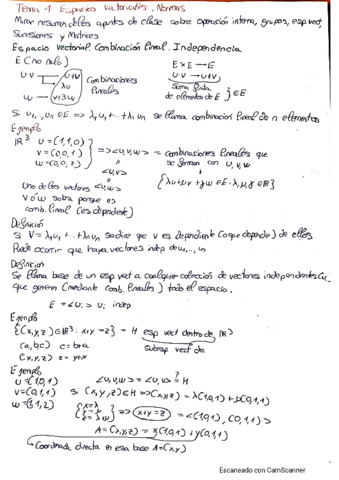 Tema 1 Espacios vectoriales. Normas
Mirar resumen de los apuntes de clase sobre operación interna, grupos, esp.vect,
Sucesiones y Matrices
Espacio vectorial. Combinación lineal. Independencia
E (no nulo)
E × E → E
u v → u+v
λu
w → v+3w
Combinaciones lineales
u v → u+v
Suma finita de elementos de E } ∈ E
Si u₁,..,uₙ ∈ E ⇒ λ₁u₁+..+λₙuₙ se llama combinación lineal de n elementos
Ejemplo
ℝ³ u = (1,1,0)
v = (0,0,1)
⇒ <u,v,w> = combinaciones lineales que
w = (0,0,7)
se forman con u,v,w
<u,v>
{λu+μv+γw ∈ E : λ,μ,γ ∈ ℝ}
Uno de los vectores <u,w>
v ó w sobra porque es
comb. lineal (es dependiente)
Definición
Si v = λ₁u₁+..+λₙuₙ se dice que v es dependiente (o que depende) de ellos.
Puede ocurrir que haya vectores indep de u₁,..,uₙ
Definición
Se llama base de un esp vect a cualquier colección de vectores independientes
que generen (mediante comb. lineales) todo el espacio.
E = <uᵢ> uᵢ indep
Ejemplo
{(x,y,z) ∈ ℝ³ : x+y=z} = H esp vect dentro de ℝ³
(a,b,c) c=b+a
subesp vect de
(x,y,z) z=y+x
Ejemplo
u = (1,0,1)
<u,v,w> = <u,v> ? H
v = (0,1,1)
Si (x,y,z) ∈ H ⇒ (x,y,z) = λ(1,0,1) + μ(0,1,1)
w = (1,1,2)
⇒ x+y=z = <(1,0,1), (0,1,1)>
A = (x,y,z) = x(1,0,1) + y(0,1,1)
Coordenada directa en esa base A = (x,y)
Escaneado con CamScanner